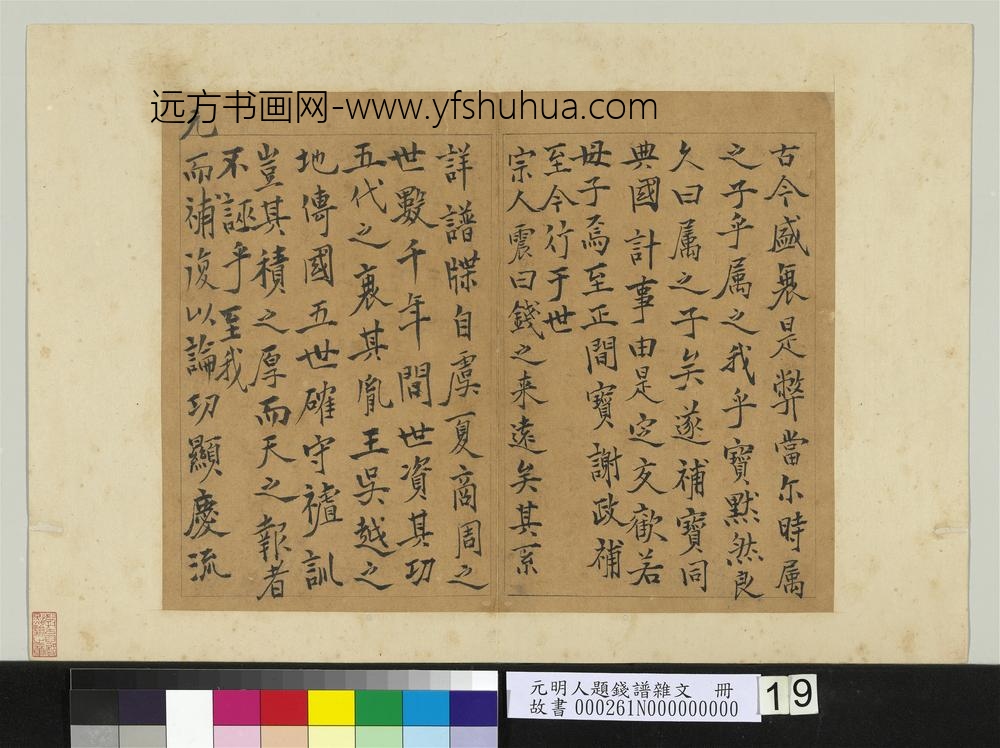 远方书画网-www.yfshuhua.com
古今盛衰是弊當尔時属
之子乎属之我乎寶默然良
久曰属之子矣遂補寶同
典國計事由是定交歡若
母子焉至正間寶謝政補
至今行于世
宗人震曰錢之来遠矣其系
詳譜牒自虞夏商周之
世數千年間世資其功
五代之衰其胤王吳越之
地傳國五世確守禮訓
豈其積之厚而天之報者
不誣乎至我
元
而補復以論功顯慶流
元明人題錢譜雜文 冊
故書 000261N000000000
19